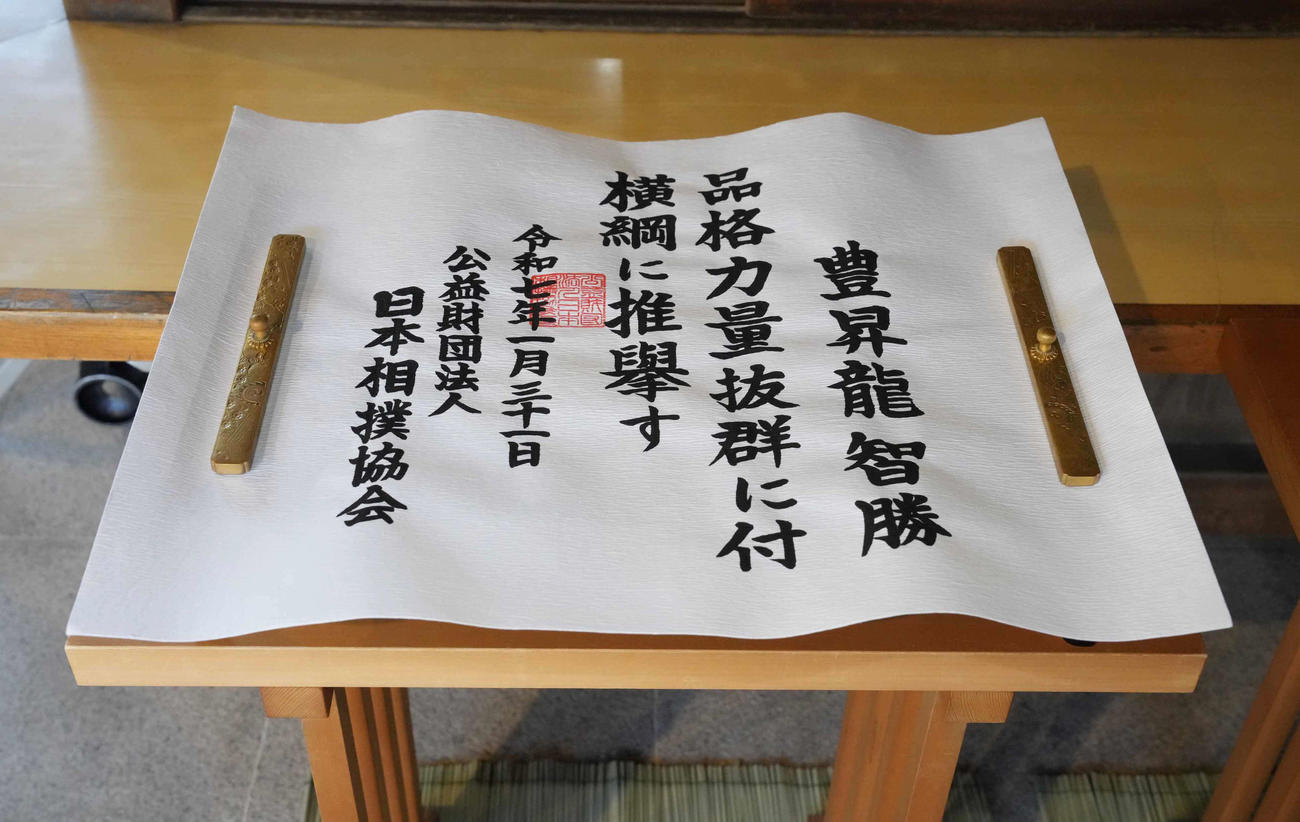 豊昇龍智勝
品格力量抜群に付
横綱に推擧す
令和七年一月三十一日
公益財団法人
日本相撲協会